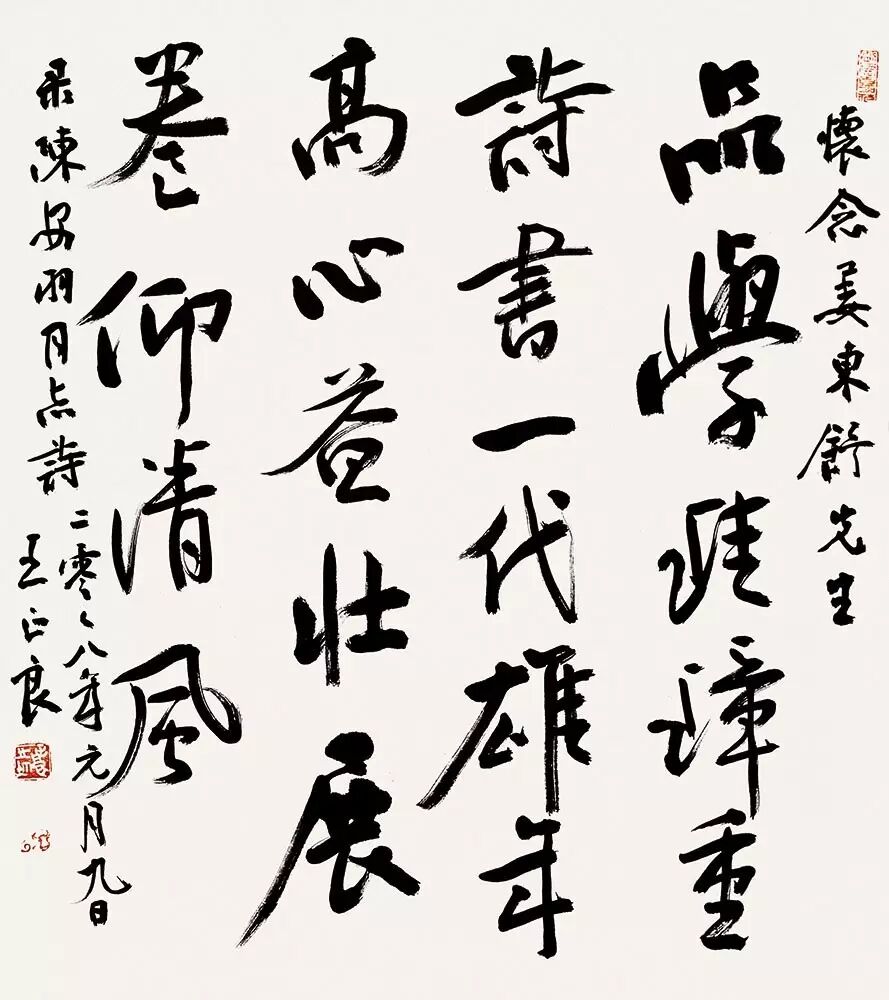 懷念姜東舒先生
品學珪璋重
詩書一代雄年
高心益壯展
卷仰清風
录陳安羽同志詩
二零〻八年元月九日
王正良